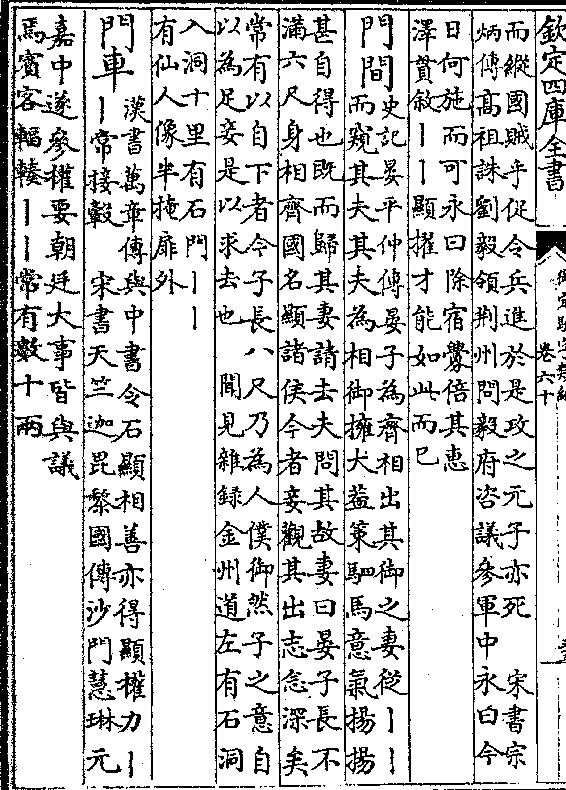 欽定四庫全書
御定駢字類編
卷六十
而縱國賊乎促令兵進於是攻之元子亦死　宋書宗
炳傳高祖誅劉毅領荆州問毅府咨議參軍申永曰今
日何施而可永曰除宿釁倍其惠
澤貫敘丨丨顯擢才能如此而已
門間
史記晏平仲傳晏子為齊相出其御之妻從丨丨
而窺其夫其夫為相御擁大葢策駟馬意氣揚揚
甚自得也既而歸其妻請去夫問其故妻曰晏子長不
滿六尺身相齊國名顯諸侯今者妾觀其出志念深矣
常有以自下者今子長八尺乃為人僕御然子之意自
以為足妾是以求去也　聞見雜録金州道左有石洞
入洞十里有石門丨丨
有仙人像半掩扉外
門車
漢書萬章傳與中書令石顯相善亦得顯權力丨
丨常接轂　宋書天竺迦毘黎國傳沙門慧琳元
嘉中遂參權要朝廷大事皆與議
焉賓客輻輳丨丨常有數十兩